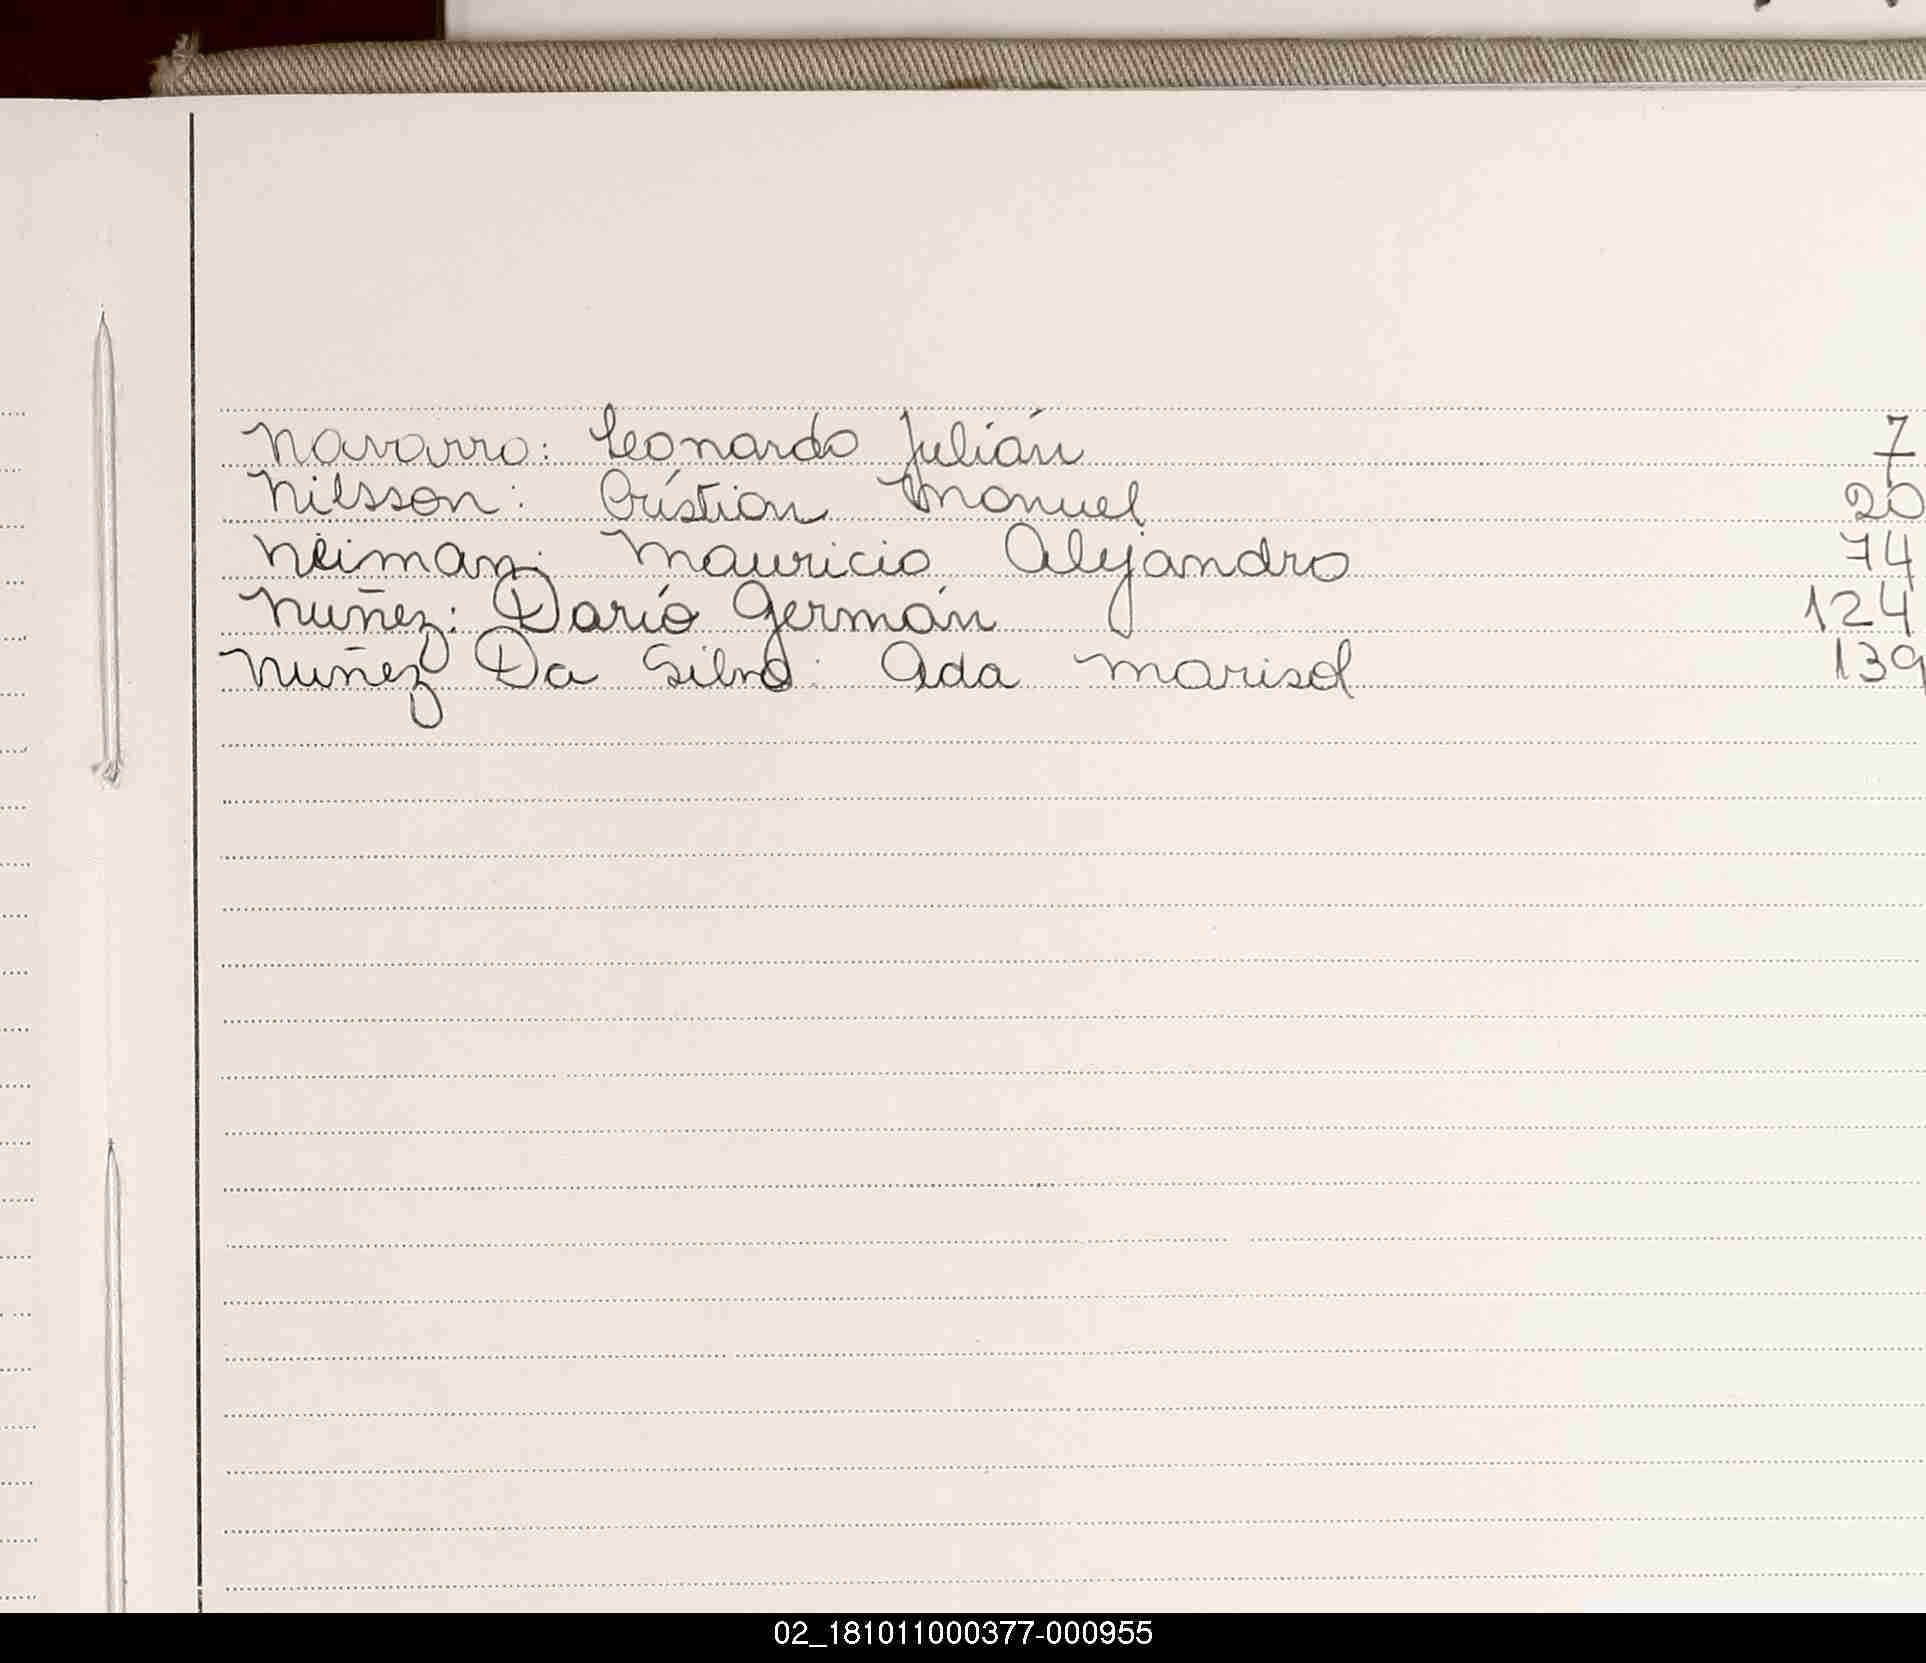 Navarro: Leonardo Julián 7
Nilsson: Cristian Manuel 20
Neiman: Mauricio Alejandro 74
Nuñez: Darío Germán 124
Nuñez Da Silva: Ada Marisol 139
02_181011000377-000955